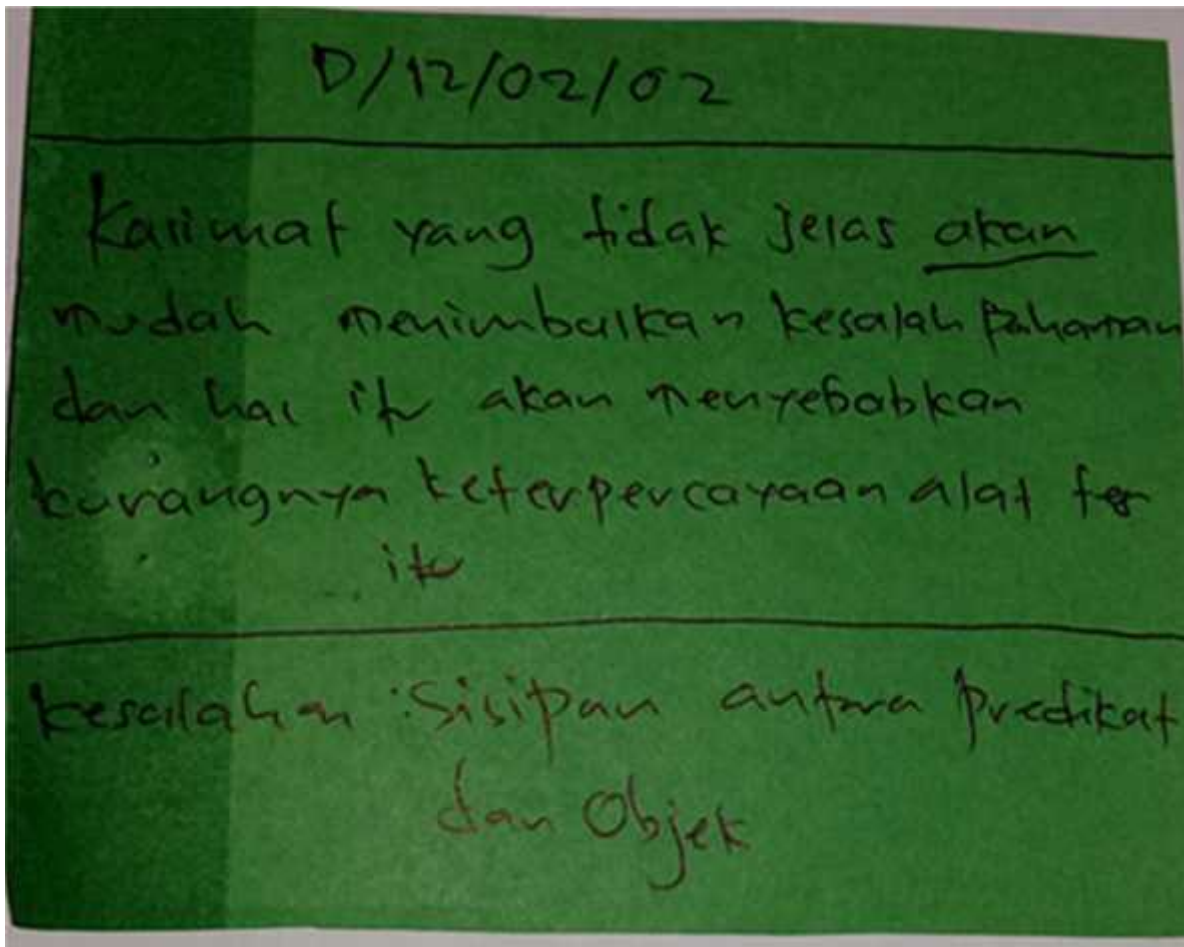 D/12/02/02
Kalimat yang tidak jelas akan
mudah menimbulkan kesalah pahaman
dan hal itu akan menyebabkan
kurangnya keterpercayaan alat tes
itu
kesalahan : Sisipan antara Predikat
dan Objek